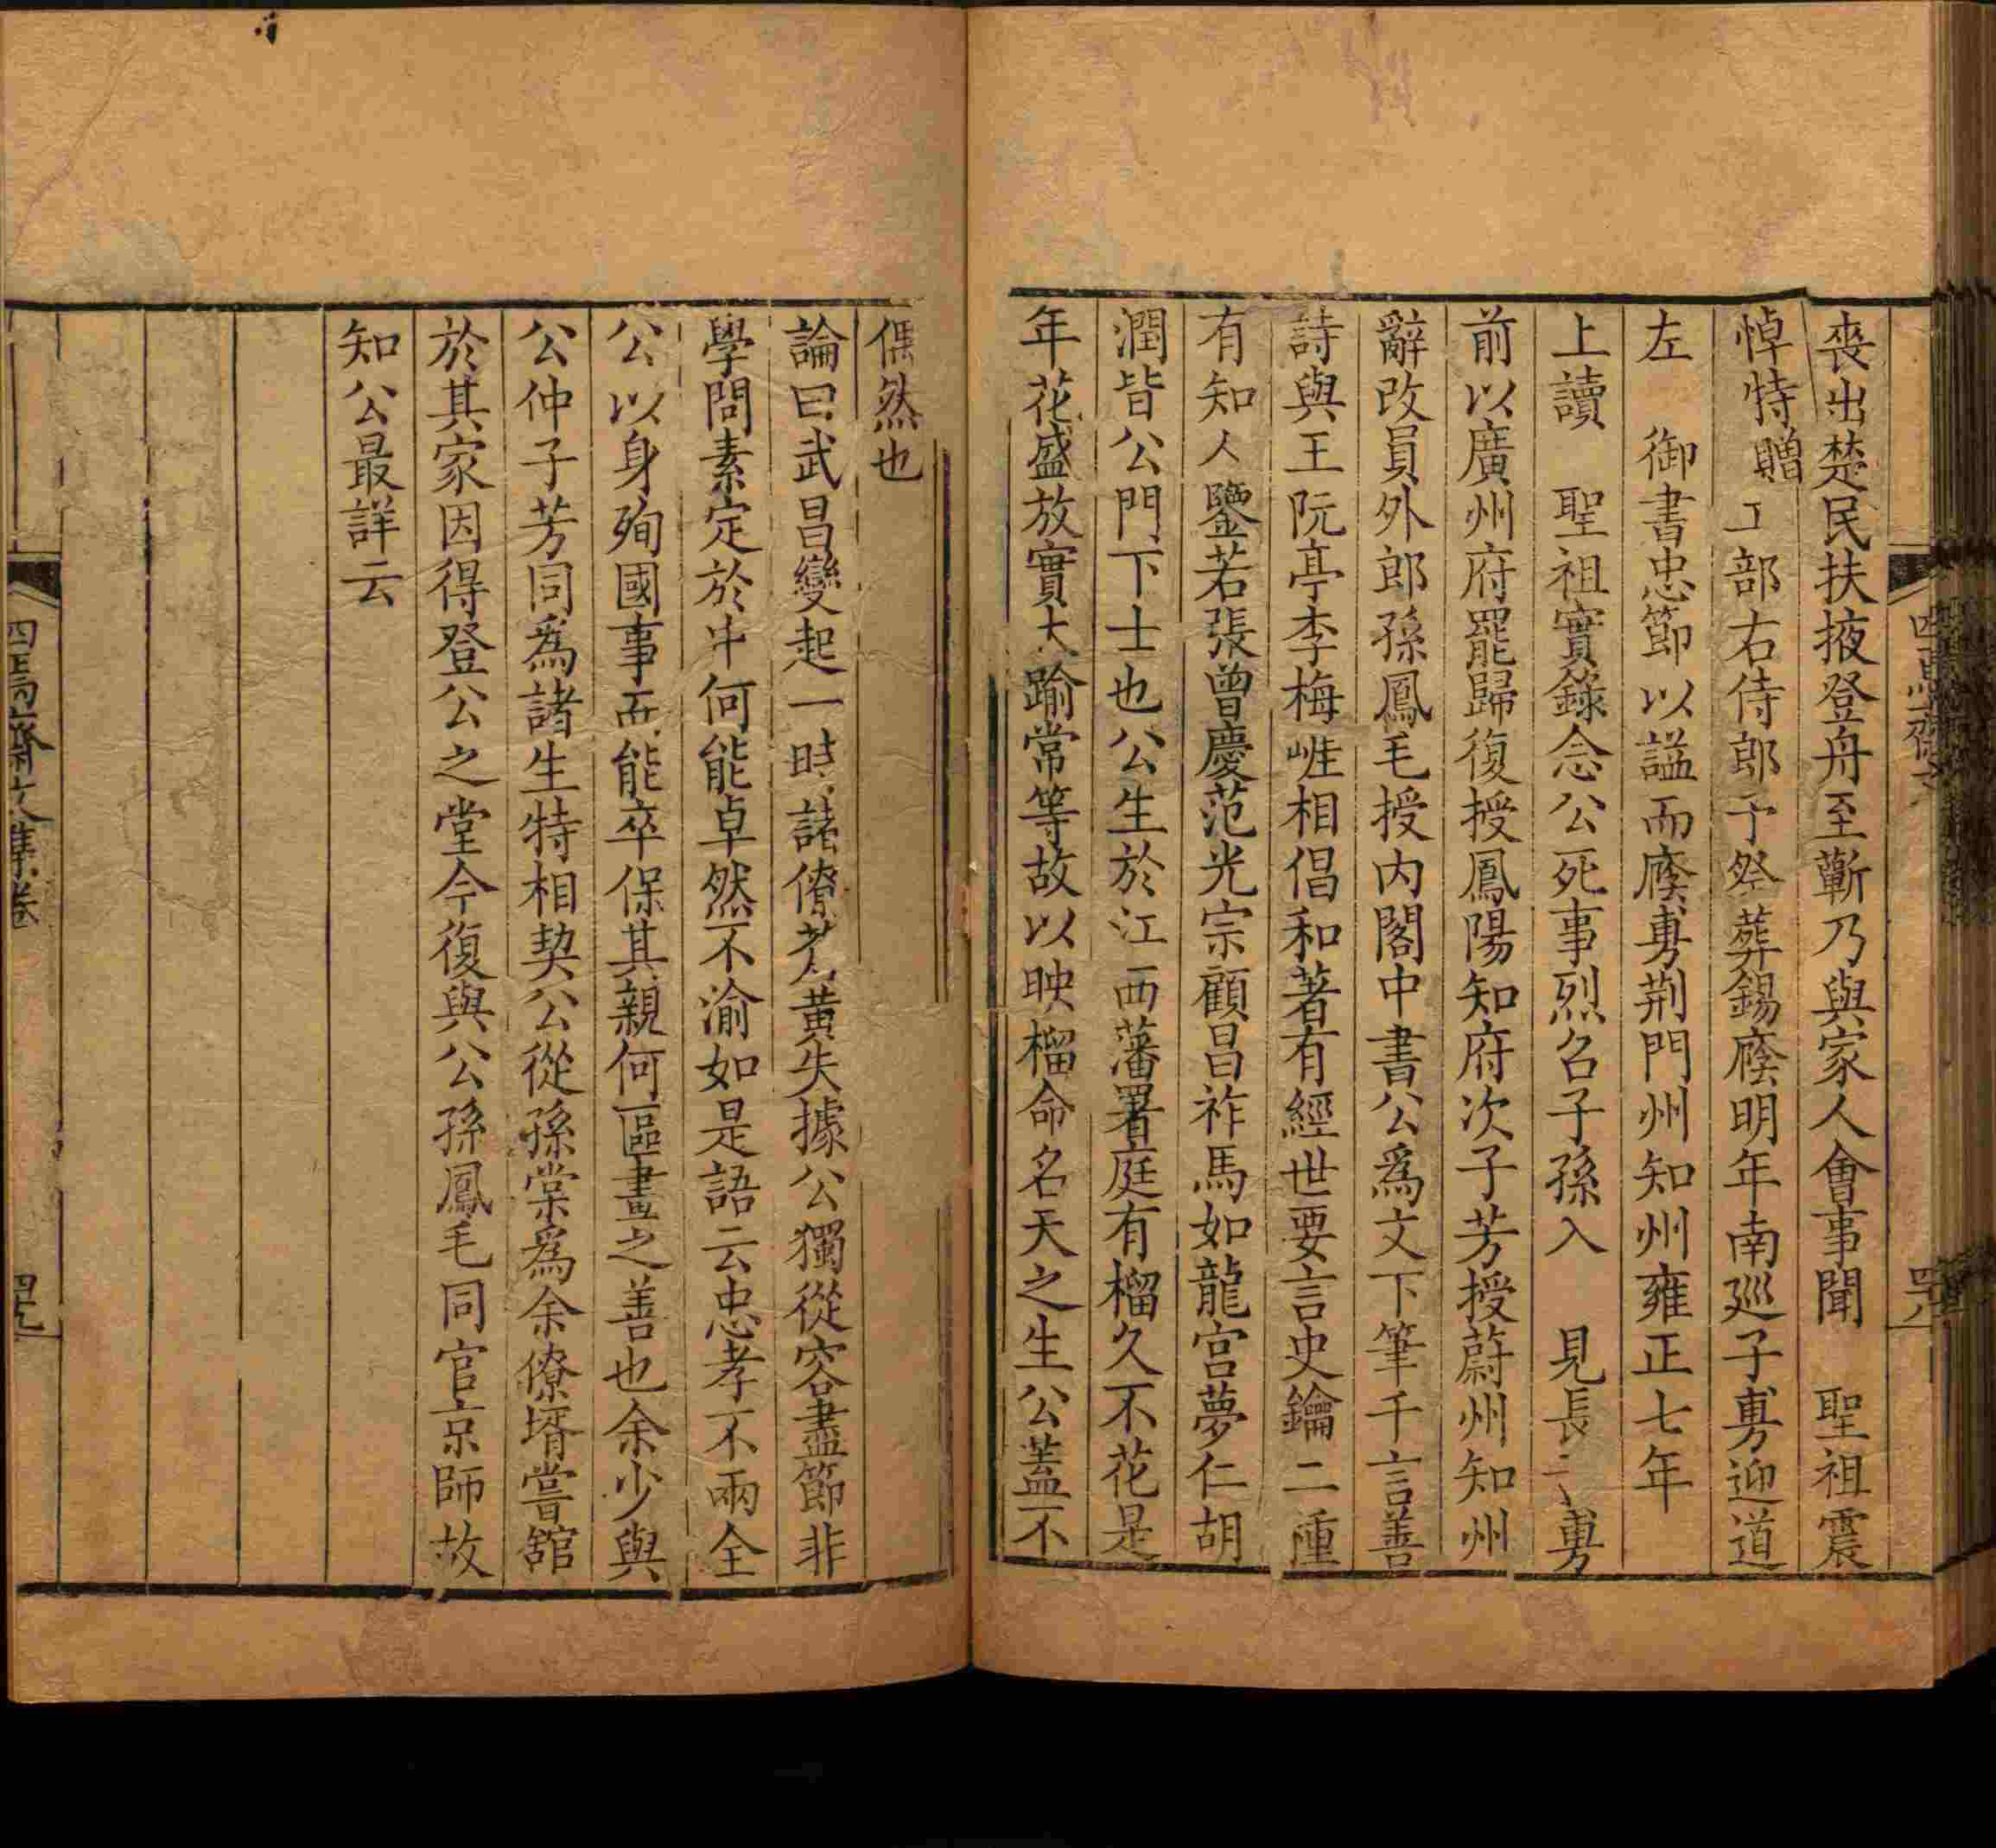 喪出楚民扶掖登舟至蘄乃與家人會事聞　聖祖震
悼特贈工部右侍郎予祭葬錫廕明年南廵子旉迎道
左　御書忠節以謚而廕旉荆門州知州雍正七年
上讀　聖祖實錄念公死事烈名子孫入　見長子旉
前以廣州府罷歸復授鳳陽知府次子芳授蔚州知州
辭改員外郎孫鳳毛授内閣中書公爲文下筆千言善
詩與王阮亭李梅崕相倡和著有經世要言史鑰二種
有知人鑒若張曾慶范光宗顧昌祚馬如龍宫夢仁胡
潤皆公門下士也公生於江西藩署庭有榴久不花是
年花盛放實大踰常等故以映榴命名天之生公蓋不
四焉齋文
四八
偶然也
論曰武昌變起一時諸僚若黄失據公獨從容盡節非
學問素定於中何能卓然不渝如是語云忠孝不兩全
公以身殉國事而能卒保其親何區畫之善也余少與
公仲子芳同爲諸生特相契公從孫棠爲余僚壻嘗舘
於其家因得登公之堂今復與公孫鳳毛同官京師故
知公最詳云
四焉齋文集卷
四九